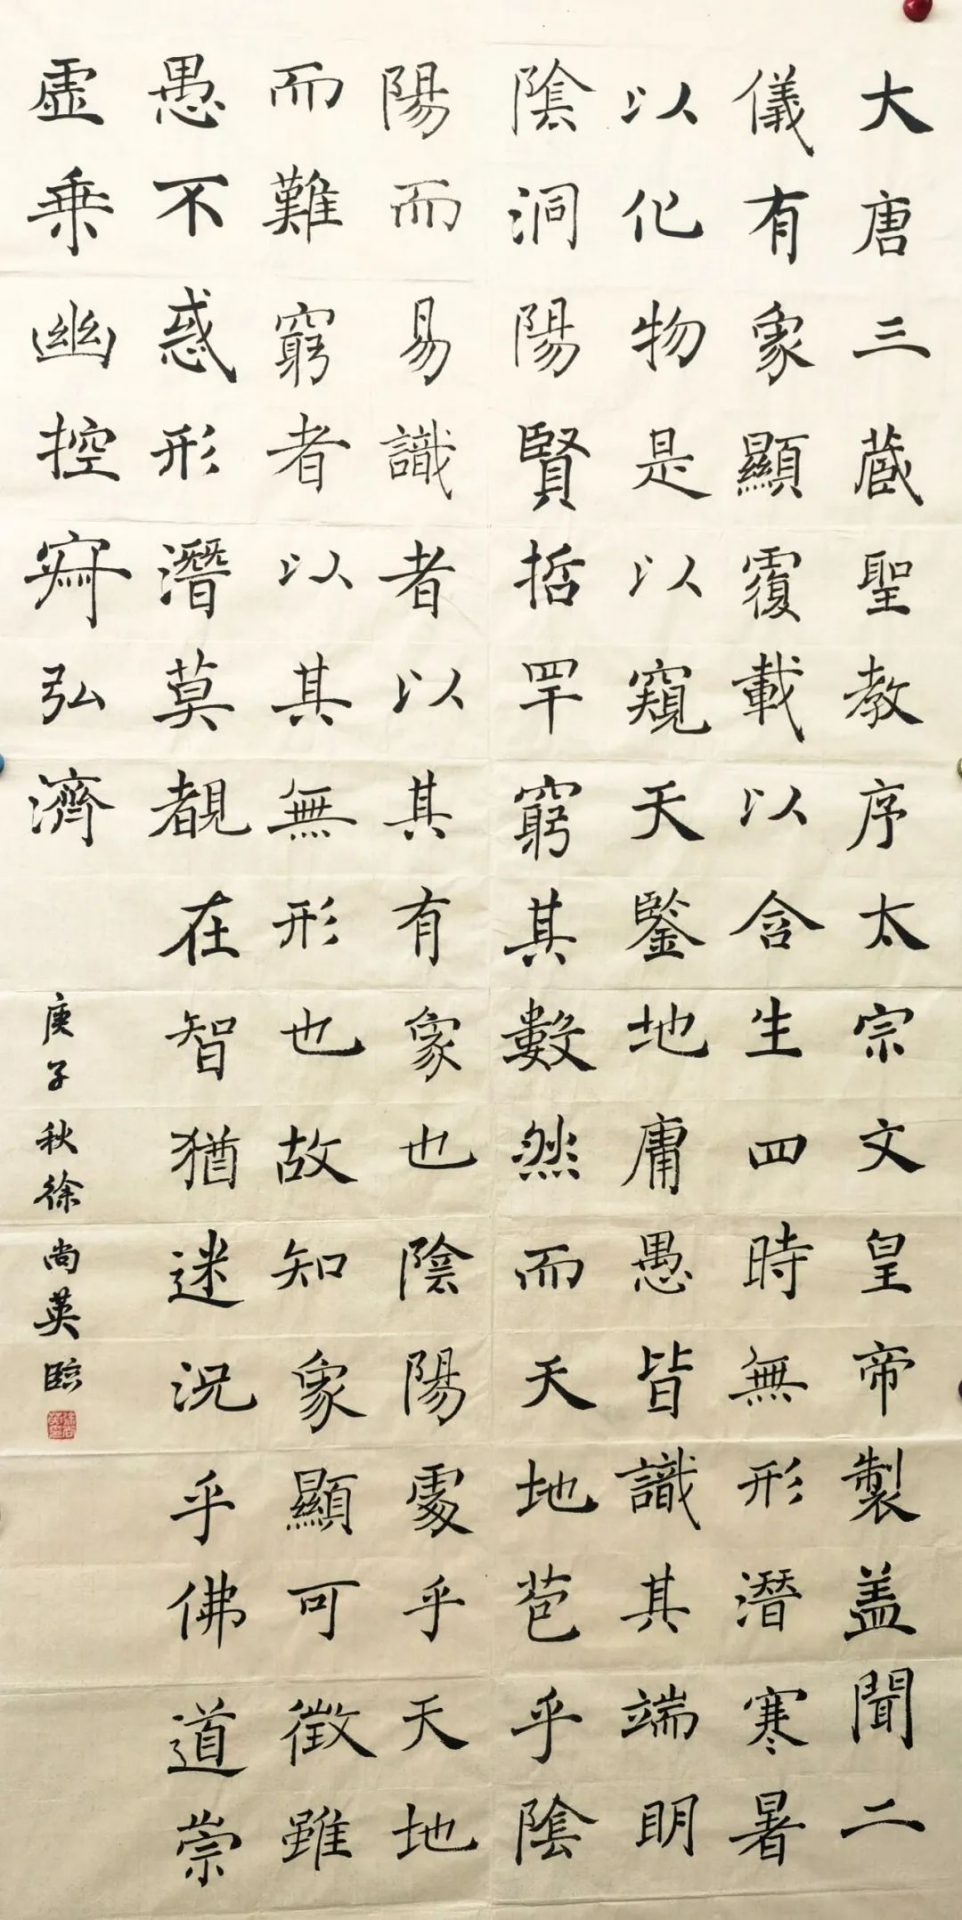 大唐三蔵聖教序太宗文皇帝製盖聞二
儀有象顯覆載以含生四時無形潛寒暑
以化物是以窺天鑒地庸愚皆識其端明
陰洞陽賢哲罕窮其數然而天地苞乎陰
陽而易識者以其有象也陰陽處乎天地
而難窮者以其無形也故知象顯可徵雖
愚不惑形潛莫覩在智猶迷況乎佛道崇
虛乗幽控寂弘濟
庚子秋徐尚英臨